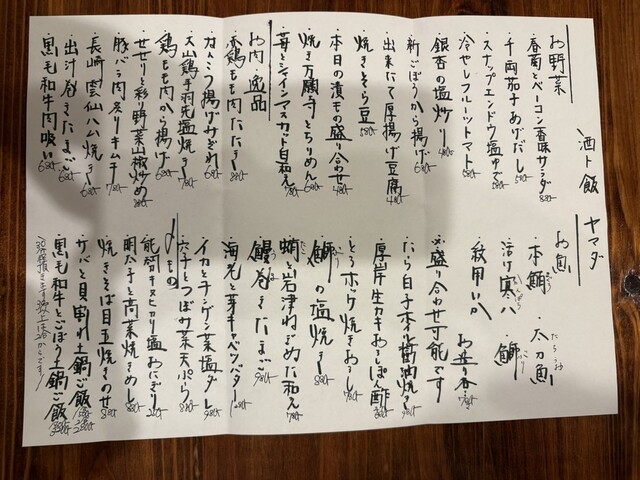 酒ト飯 ヤマダ
お野菜
・春菊とベーコン香味サラダ 880-
・千両茄子あげだし 580-
・スナップエンドウ塩ゆで 580-
・冷やしフルーツトマト 680-
・銀杏の塩炒り 480-
・新ごぼうから揚げ 680-
・出来たて厚揚げ豆腐 480-
・焼きそら豆 580-
・本日の漬もの盛り合わせ 480-
・焼き万願寺とちりめん 680-
・苺とシャインマスカット白和え 780-
お肉・逸品
・赤鶏もも肉たたき 880-
・なんこつ揚げみぞれ 680-
・大山鶏手羽先塩焼き 780-
・鶏もも肉から揚げ 680-
・せせりと彩り野菜山椒炒め 880-
・豚バラ肉炙りキムチ 780-
・長崎雲仙ハム焼き 680-
・出汁巻きたまご 680-
・黒毛和牛肉吸い 680-
お魚
・本鮪 ・太刀魚
・活〆寒八 ・鰤
・紋甲いか
お造り各 780-
※盛り合わせ可能です
・たら白子ポン酢 醤油焼き
・厚岸生カキおろしポン酢
・とろホッケ焼きおろし
・鰤の塩焼き
・蛸と岩津ねぎぬた和え 780-
・鰻巻きたまご 980-
・海老と芽キャベツバター
・イカとチンゲン菜塩ダレ 980-
・穴子とつぼみ菜天ぷら 880-
〆もの
・能登キヌヒカリ塩おにぎり
・明太子と高菜焼きめし 880-
・焼きそば目玉焼きのせ 880-
・サバと貝割れ土鍋ご飯
・黒毛和牛とごぼう土鍋ご飯